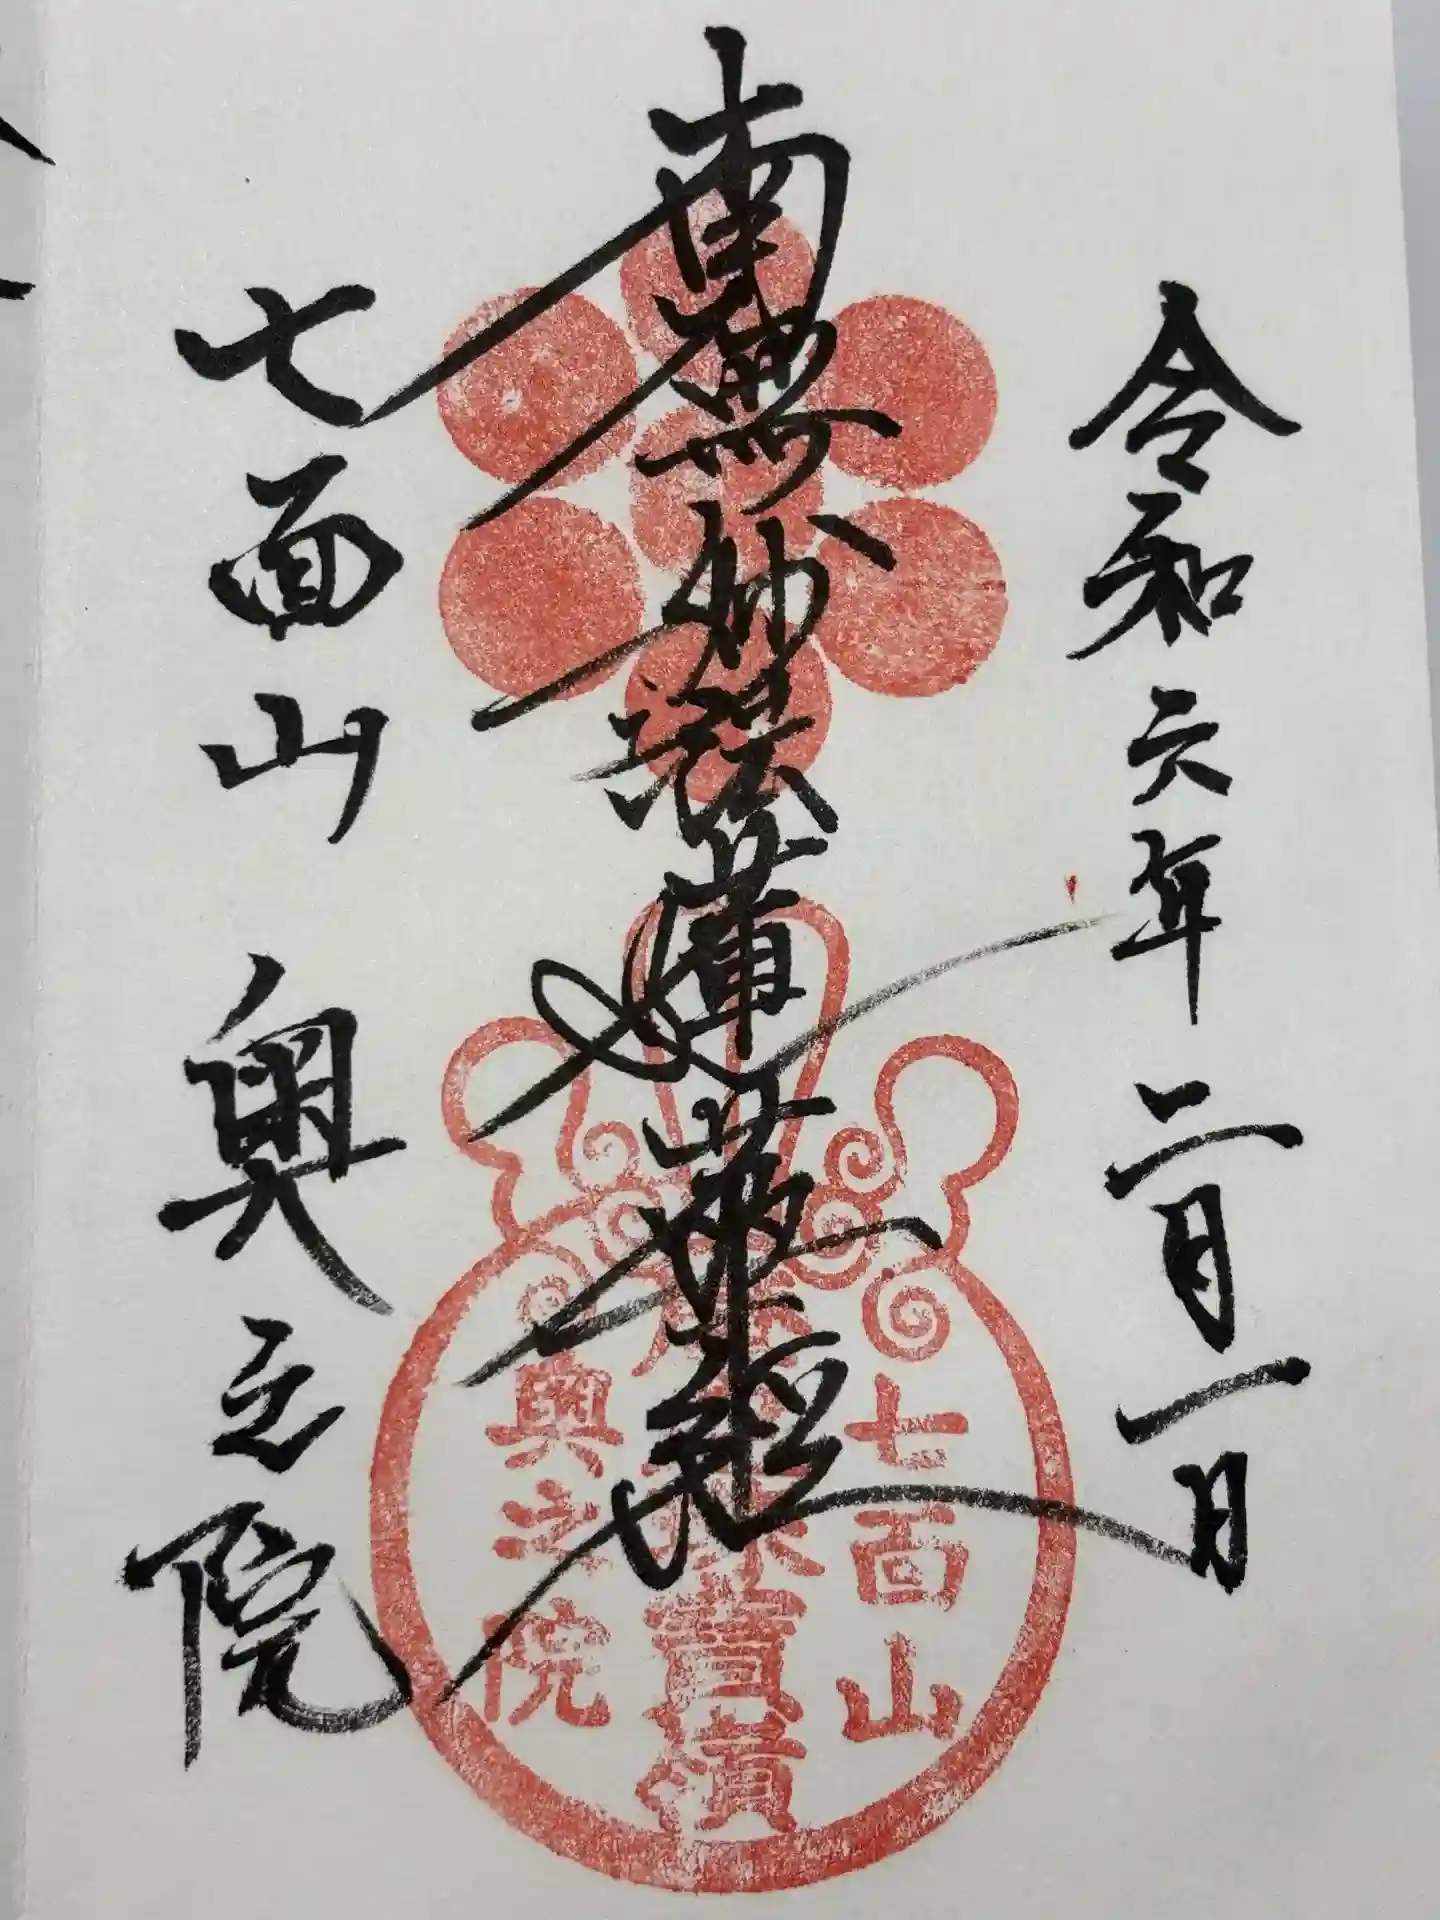 令和六年二月一日
南無妙法蓮華経
七面山奥之院
七面山
奥之院